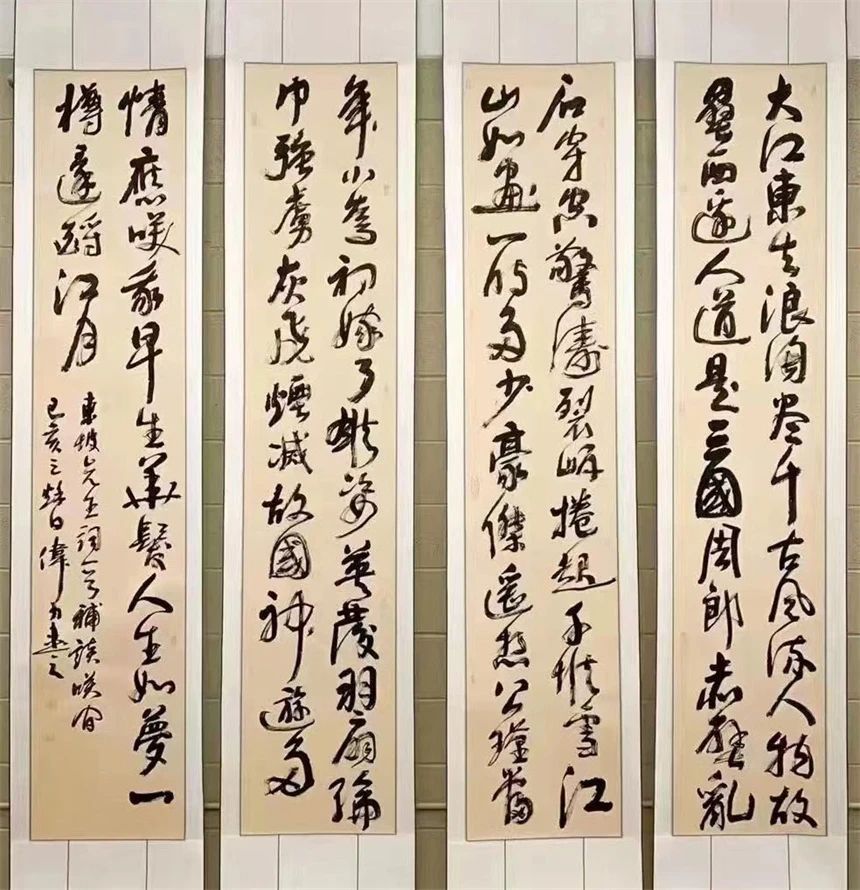 大江東去浪淘盡千古風流人物故
壘西邊人道是三國周郎赤壁亂
石穿空驚濤裂岸捲起千堆雪江
山如畫一時多少豪傑遙想公瑾當
年小喬初嫁了雄姿英發羽扇綸
巾強虜灰飛煙滅故國神遊多
情應咲我早生華髮人生如夢一
樽還酹江月
東坡先生詞補談咲間
己亥秋日偉書之